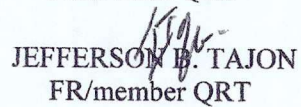 JEFFERSON B. TAJON
FR/member QRT